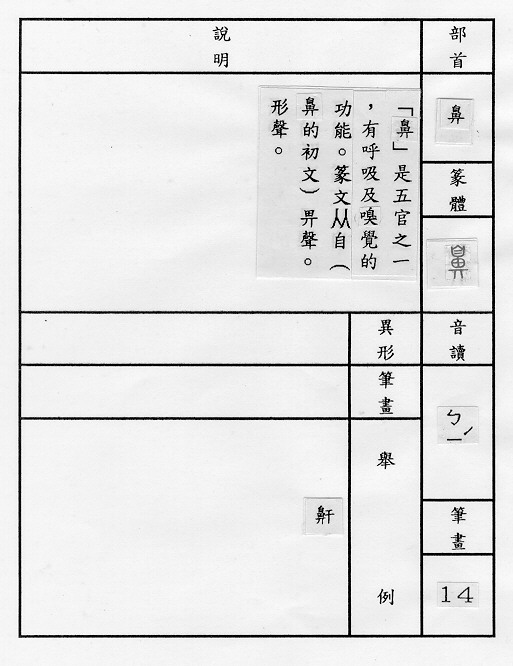 部首
鼻
篆體
鼻
音讀
ㄅㄧˊ
筆畫
14
說明
「鼻」是五官之一
，有呼吸及嗅覺的
功能。篆文从自（
鼻的初文）畀聲。
形聲。
異形
筆畫
舉例
鼾